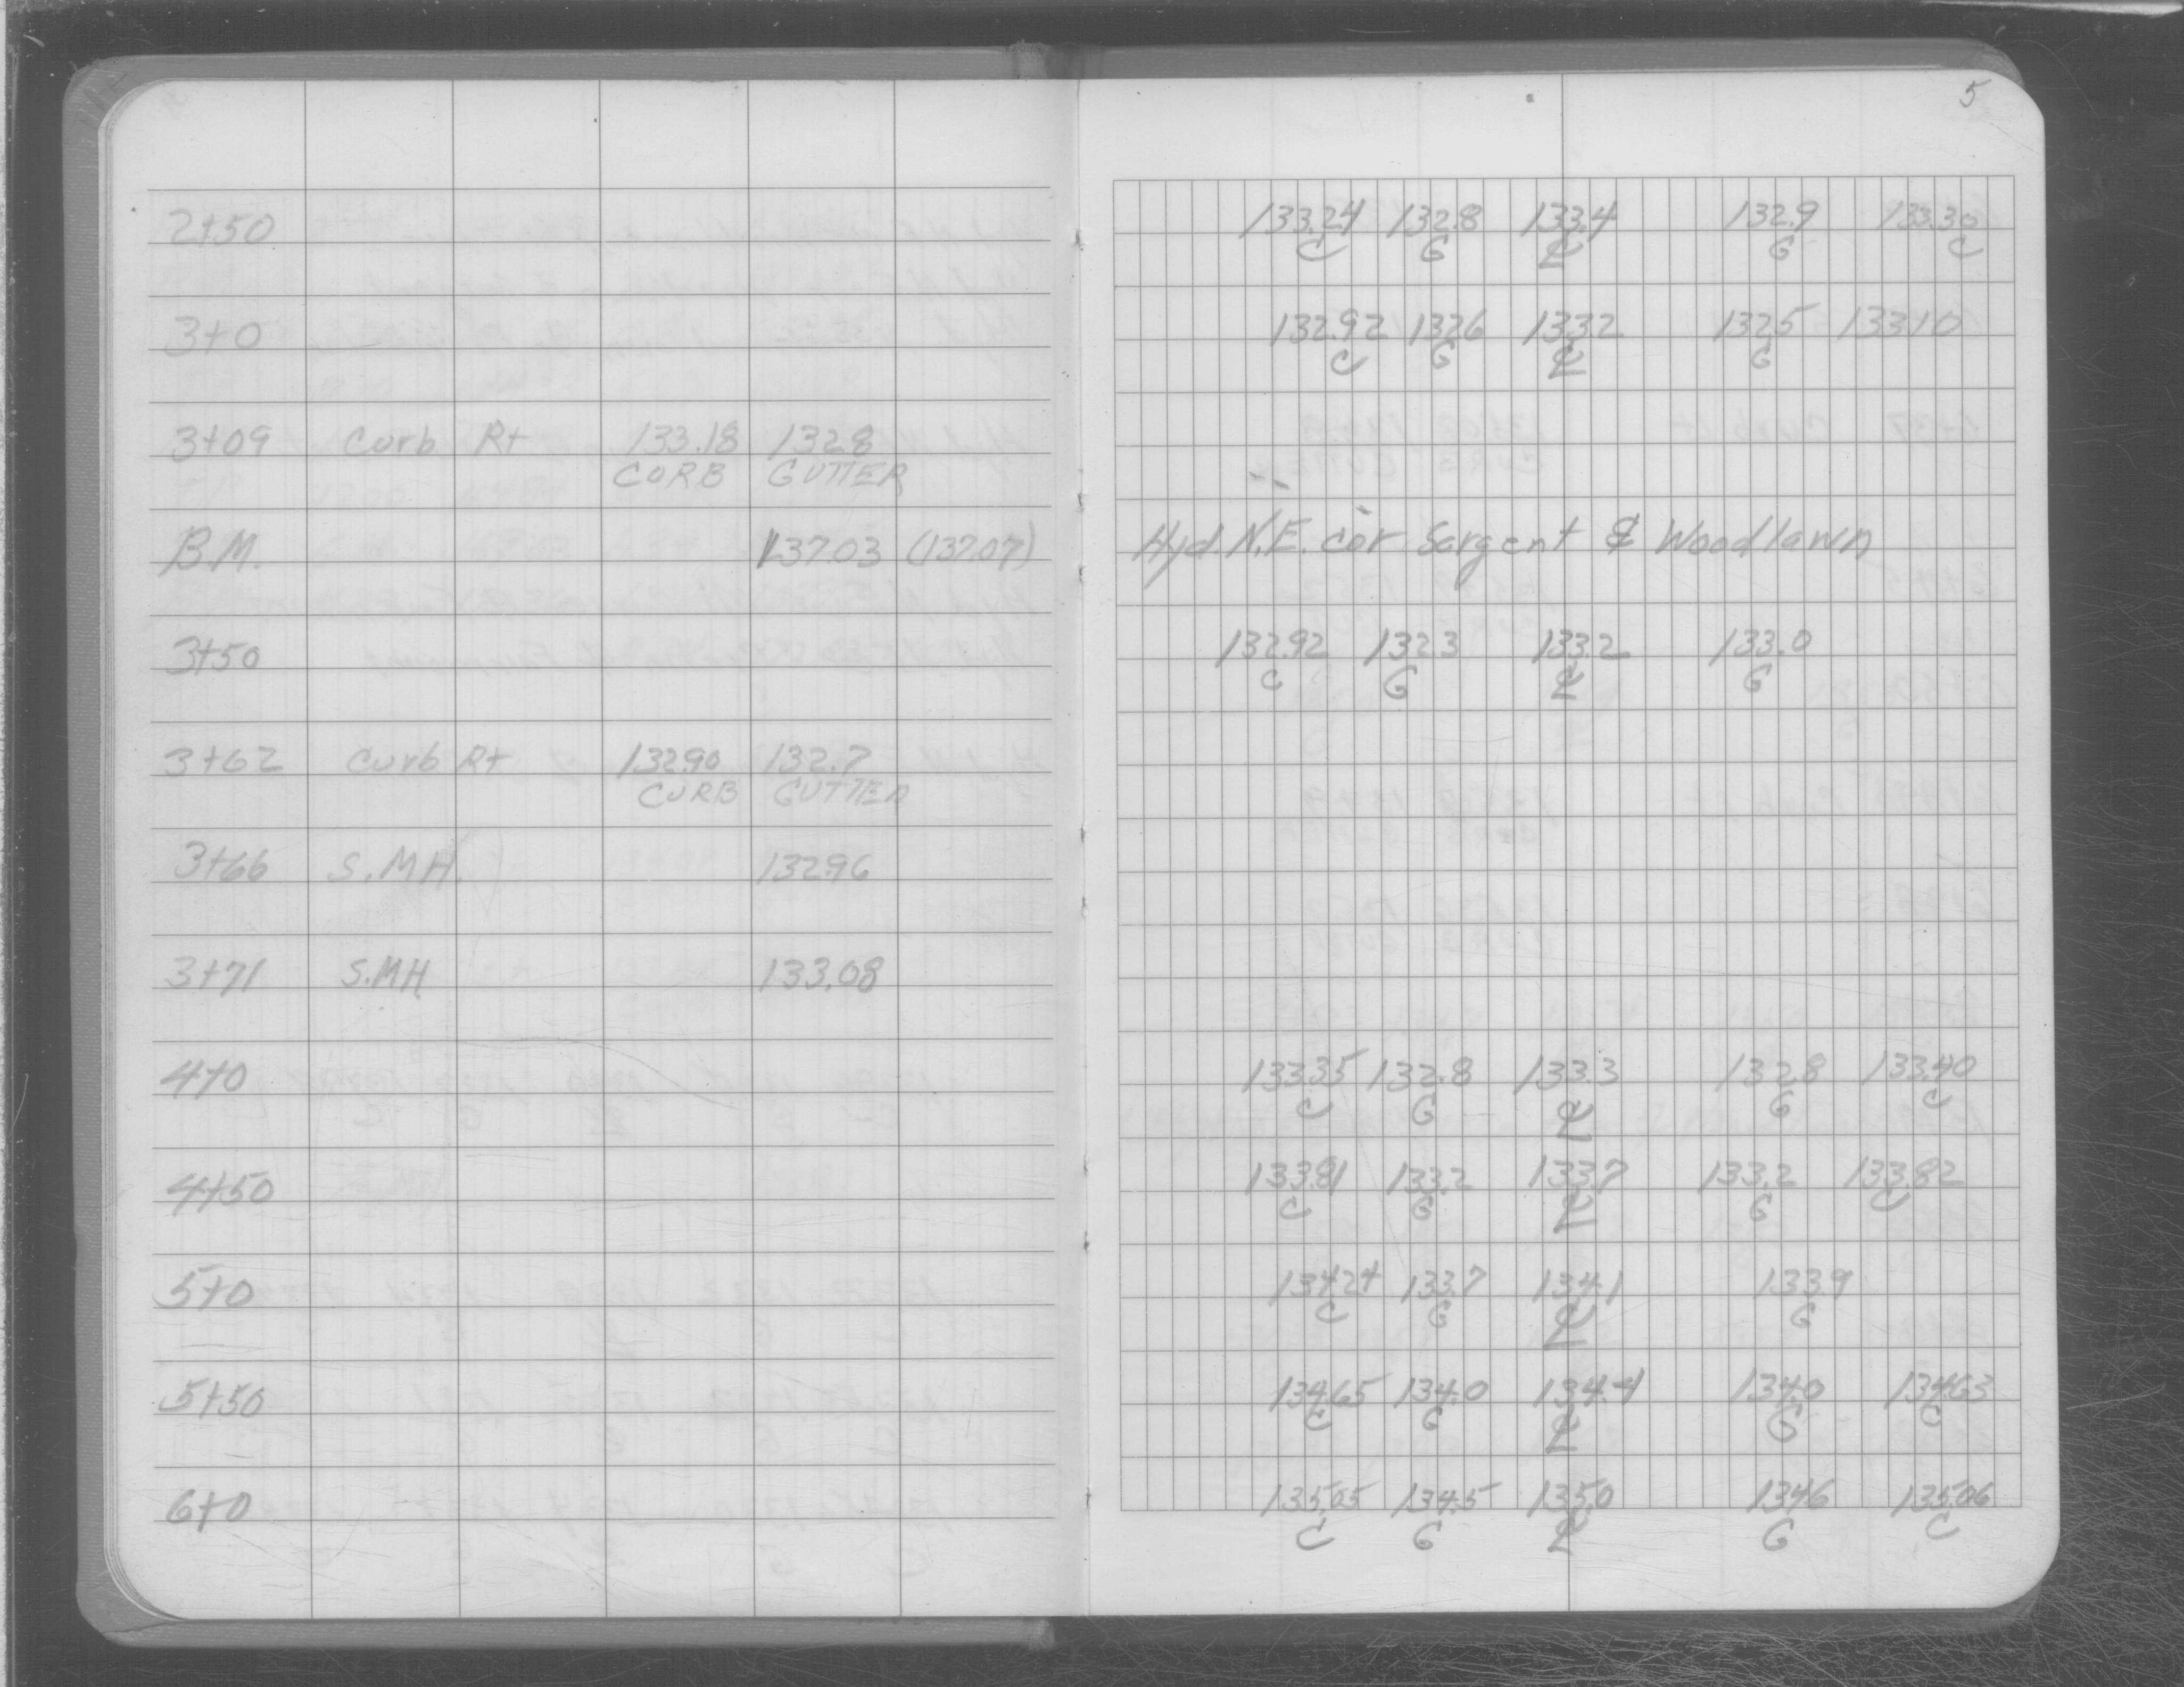 5
2+50 133.24 132.8 133.4 132.9 133.30
C G ℄ G C
3+0 132.92 132.6 133.2 132.5 133.10
C G ℄ G
3+09 Curb Rt 133.18 132.8
CURB GUTTER
B.M. 137.03 (137.07) Hyd N.E. cor Sargent & Woodlawn
3+50 132.92 132.3 133.2 133.0
C G ℄ G
3+62 Curb Rt 132.90 132.7
CURB GUTTER
3+66 S.M.H. 132.96
3+71 S.MH 133.08
4+0 133.35 132.8 133.3 132.8 133.40
C G ℄ G C
4+50 133.81 133.2 133.7 133.2 133.82
C G ℄ G C
5+0 134.24 133.7 134.1 133.9
C G ℄ G
5+50 134.65 134.0 134.4 134.0 134.63
C G ℄ G C
6+0 135.05 134.5 135.0 134.6 135.06
C G ℄ G C